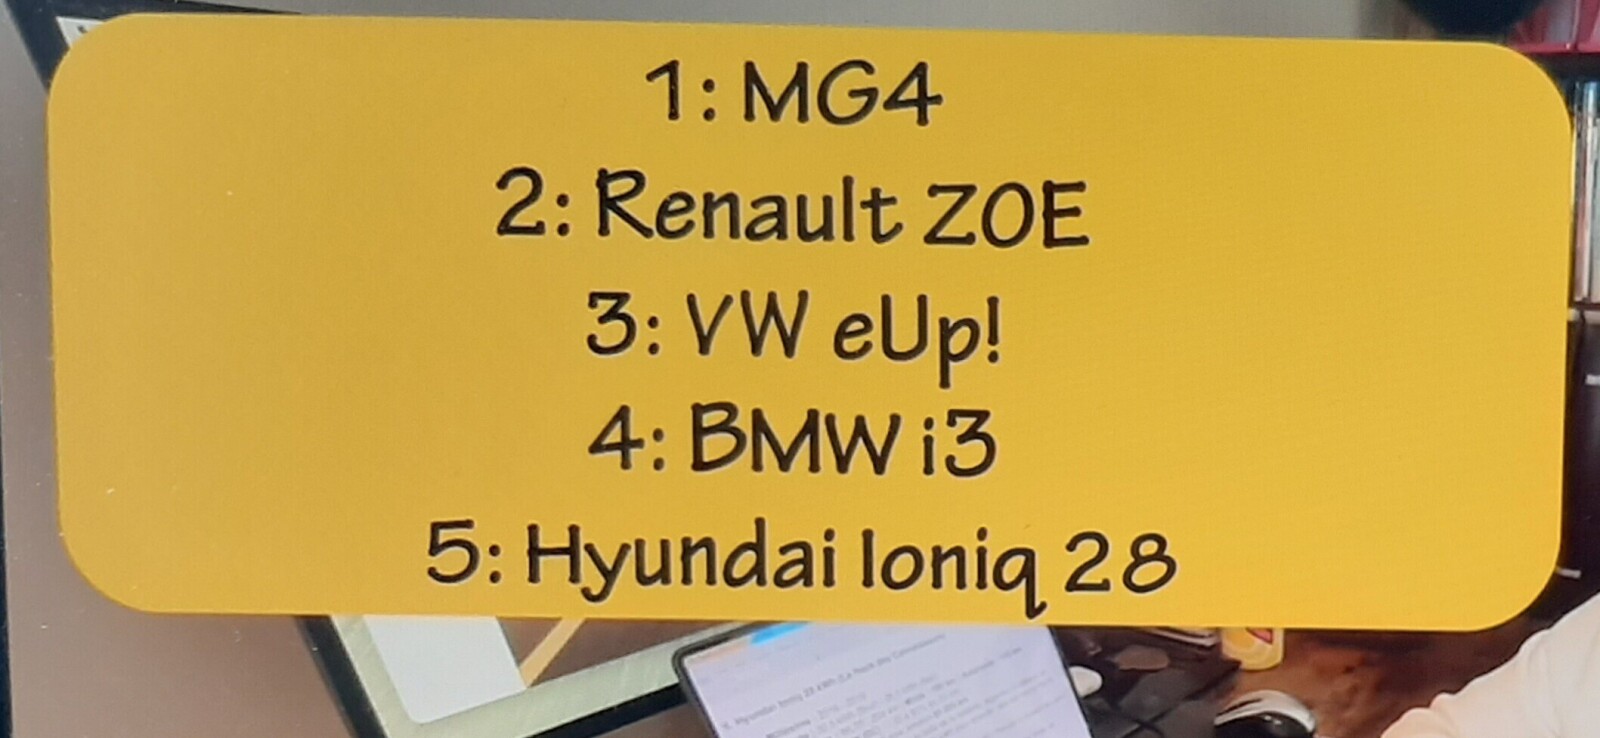 1: MG4
2: Renault ZOE
3: VW eUp!
4: BMW i3
5: Hyundai Ioniq 28